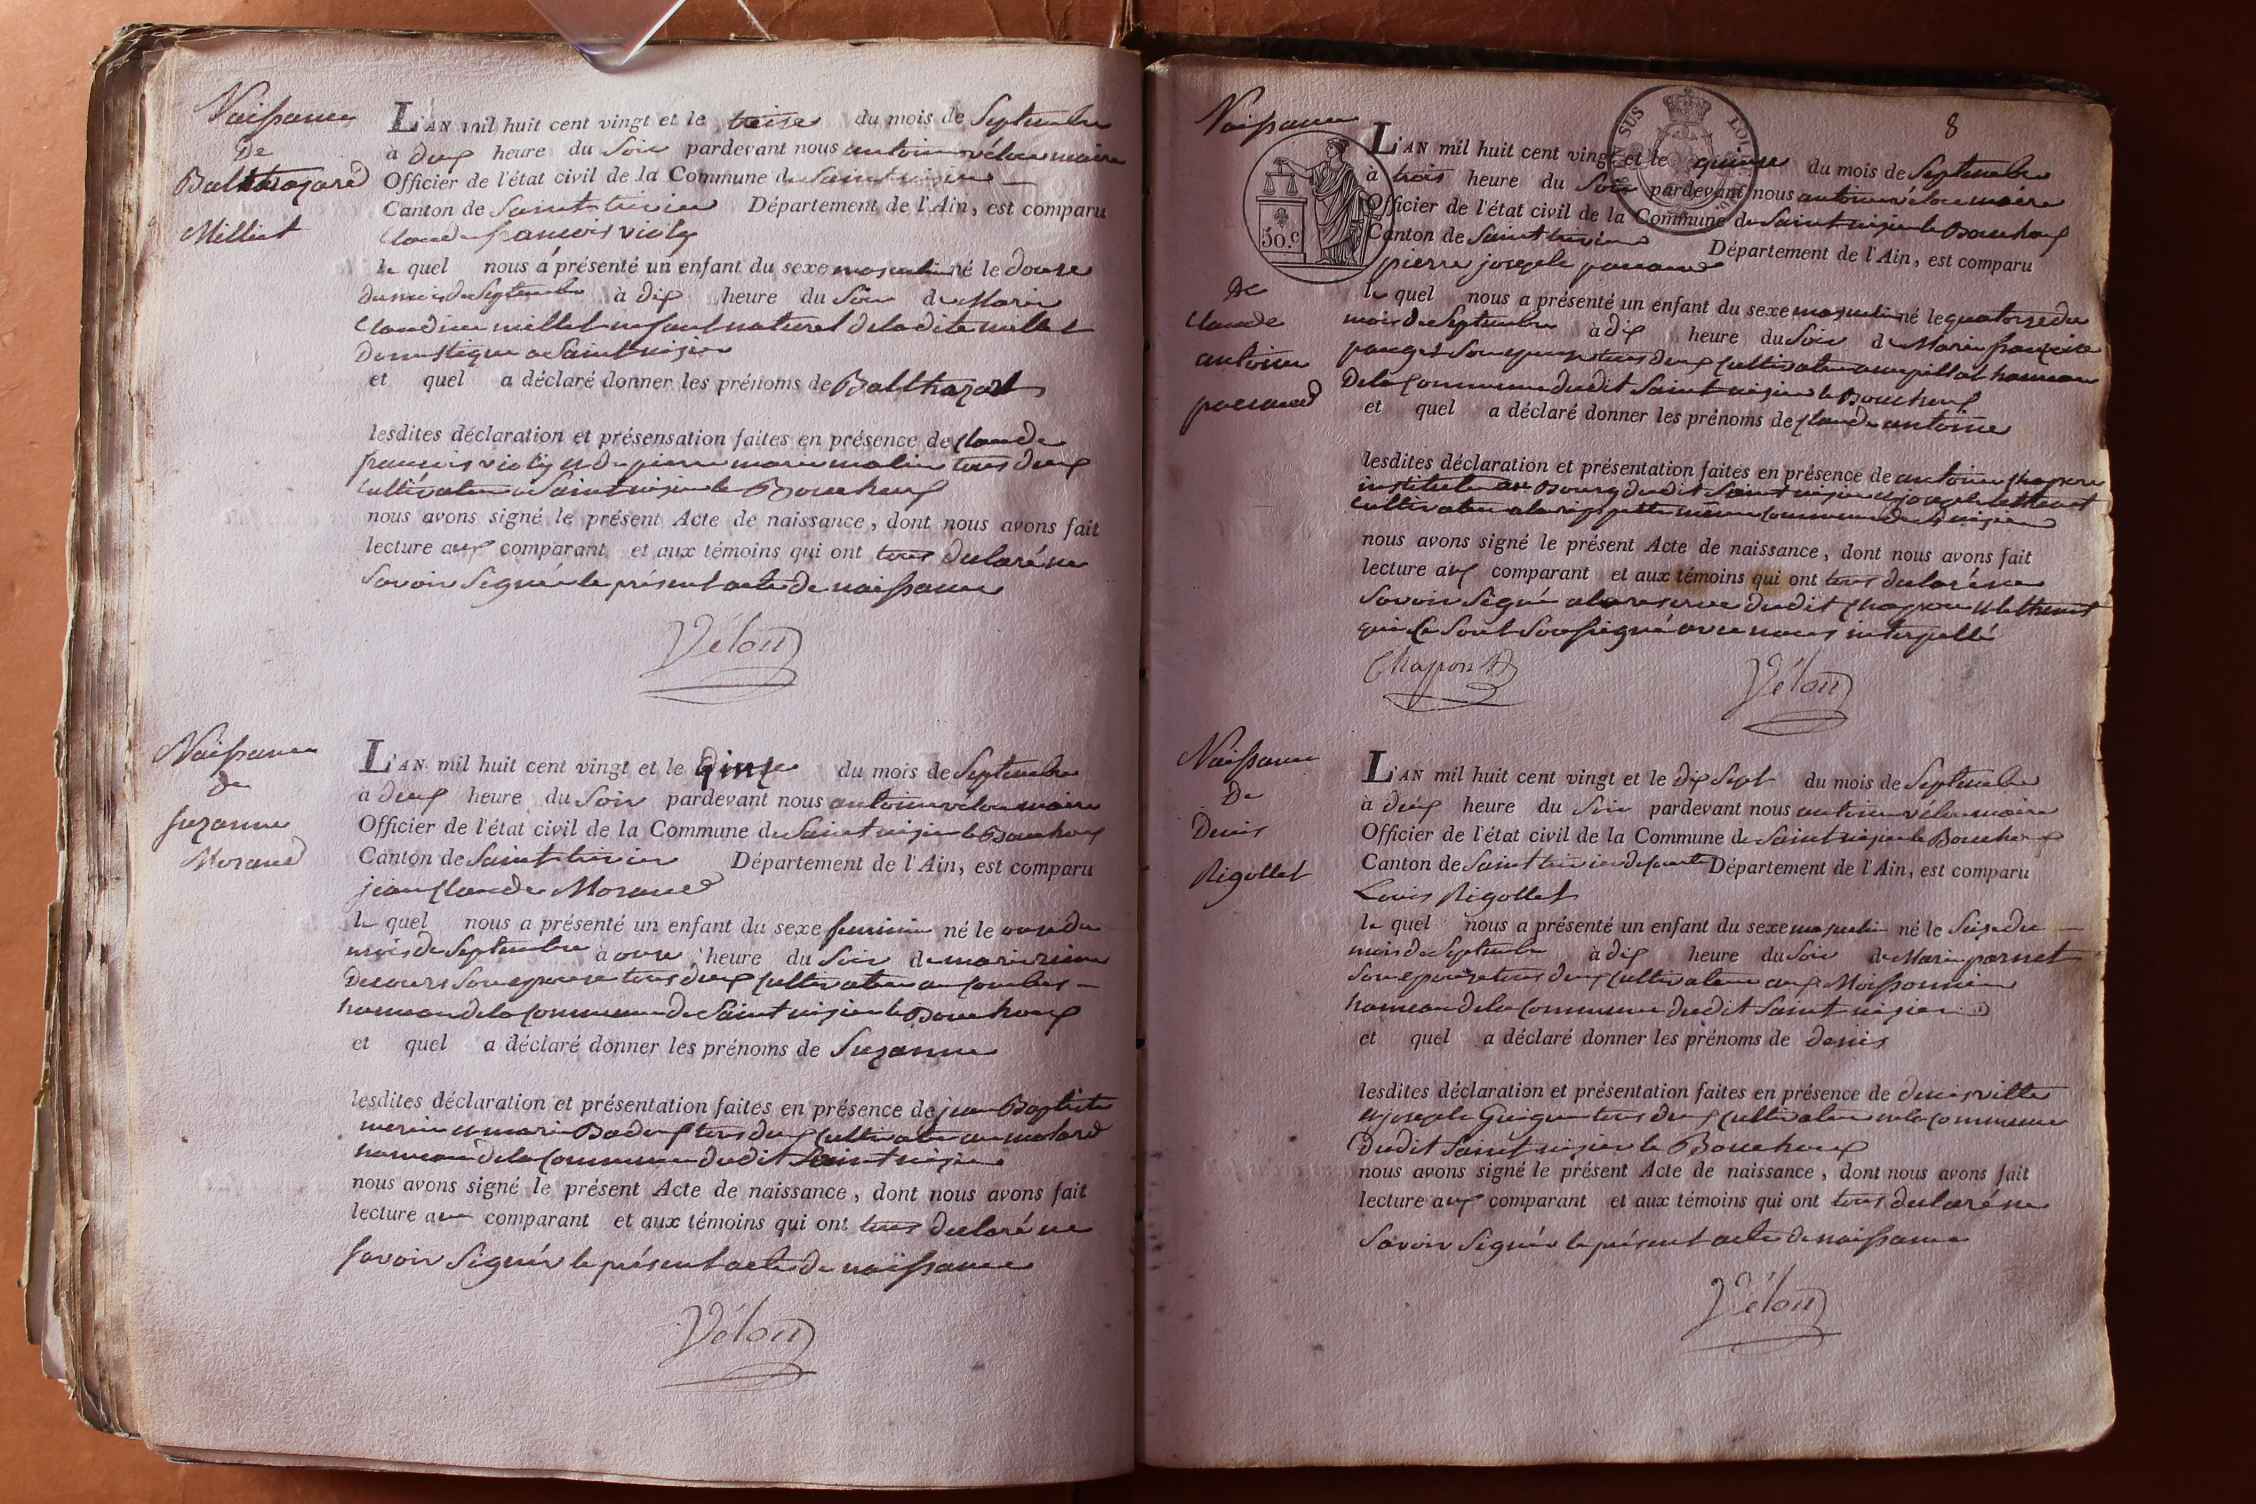 Naissance
De
Balthazard
Milliet
L'AN mil huit cent vingt et le treise du mois de Septembre
à deux heure du Soir pardevant nous antoine vélon maire
Officier de l'état civil de la Commune de Saint nisier
Canton de Saint trivier Département de l'Ain, est comparu
Claude francois violy
le quel nous a présenté un enfant du sexe masculin né le douse
du mois de Septembre à dix heure du Soir de Marie
Claudine millet enfant naturel de la dite millet
Domestique a Saint nisier
et quel a déclaré donner les prénoms de Balthazard
lesdites déclaration et présensation faites en présence de Claude
francois violy et de pierre marie molin tous deux
cultivateur a Saint nisier le Bouchoux
nous avons signé le présent Acte de naissance, dont nous avons fait
lecture aux comparant et aux témoins qui ont tous declaré ne
Savoir Signér le présent acte de naissance
Vélon
Naissance
De
Suzanne
Morand
L'AN mil huit cent vingt et le Qinze du mois de Septembre
a deux heure du Soir pardevant nous antoine vélon maire
Officier de l'état civil de la Commune de Saint nisier le Bouchoux
Canton de Saint trivier Département de l'Ain, est comparu
jean Claude Morand
le quel nous a présenté un enfant du sexe feminin né le onse du
mois de Septembre à onse heure du Soir de marie
Decours Son epouse tous deux Cultivateur au Combes
hameau de la Commune de Saint nisier le Bouchoux
et quel a déclaré donner les prénoms de Suzanne
lesdites déclaration et présentation faites en présence de jean Baptiste
et marie Badoux tous deux Cultivateur au molard
hameau de la Commune du dit Saint nisier
nous avons signé le présent Acte de naissance, dont nous avons fait
lecture aux comparant et aux témoins qui ont tous declaré ne
Savoir Signér le présent acte de naissance
Vélon
8
SUS
LOI
30.c
Naissance
De
Claude
antoine
pacaud
L'AN mil huit cent vingt et le quinse du mois de Septembre
à trois heure du Soir pardevant nous antoine vélon maire
Officier de l'état civil de la Commune de Saint nisier le Bouchoux
Canton de Saint trivier Département de l'Ain, est comparu
pierre joseph pacaud
le quel nous a présenté un enfant du sexe masculin né le quatorse du
mois de Septembre à dix heure du Soir de Marie françoise
pauget Son epouse tous deux Cultivateur au pillat hameau
De la Commune du dit Saint nisier le Bouchoux
et quel a déclaré donner les prénoms de Claude antoine
lesdites déclaration et présentation faites en présence de antoine Chapon
au Bourg du dit Saint nisier et joseph
cultivateur même Commune de St nisier
nous avons signé le présent Acte de naissance, dont nous avons fait
lecture aux comparant et aux témoins qui ont tous declaré ne
Savoir Signé a la reserve du dit Chapon et lethenet
qui Se Sont Sousigné avec nous interpellé
Chapon Vélon
Naissance
De
Denis
Rigollet
L'AN mil huit cent vingt et le dix Sept du mois de Septembre
à deux heure du Soir pardevant nous antoine vélon maire
Officier de l'état civil de la Commune de Saint nisier le Bouchoux
Canton de Saint trivier de Courtes Département de l'Ain, est comparu
Louis Rigollet
le quel nous a présenté un enfant du sexe masculin né le Seize du
mois de Septembre à dix heure du Soir de Marie pernet
Son epouse tous deux Cultivateur aux Moissonnier
hameau de la Commune du dit Saint nisier
et quel a déclaré donner les prénoms de denis
lesdites déclaration et présentation faites en présence de denis ville
et joseph Guigue tous deux Cultivateur en la Commune
du dit Saint nisier le Bouchoux
nous avons signé le présent Acte de naissance, dont nous avons fait
lecture aux comparant et aux témoins qui ont tous declaré ne
Savoir Signér le présent acte de naissance
Vélon